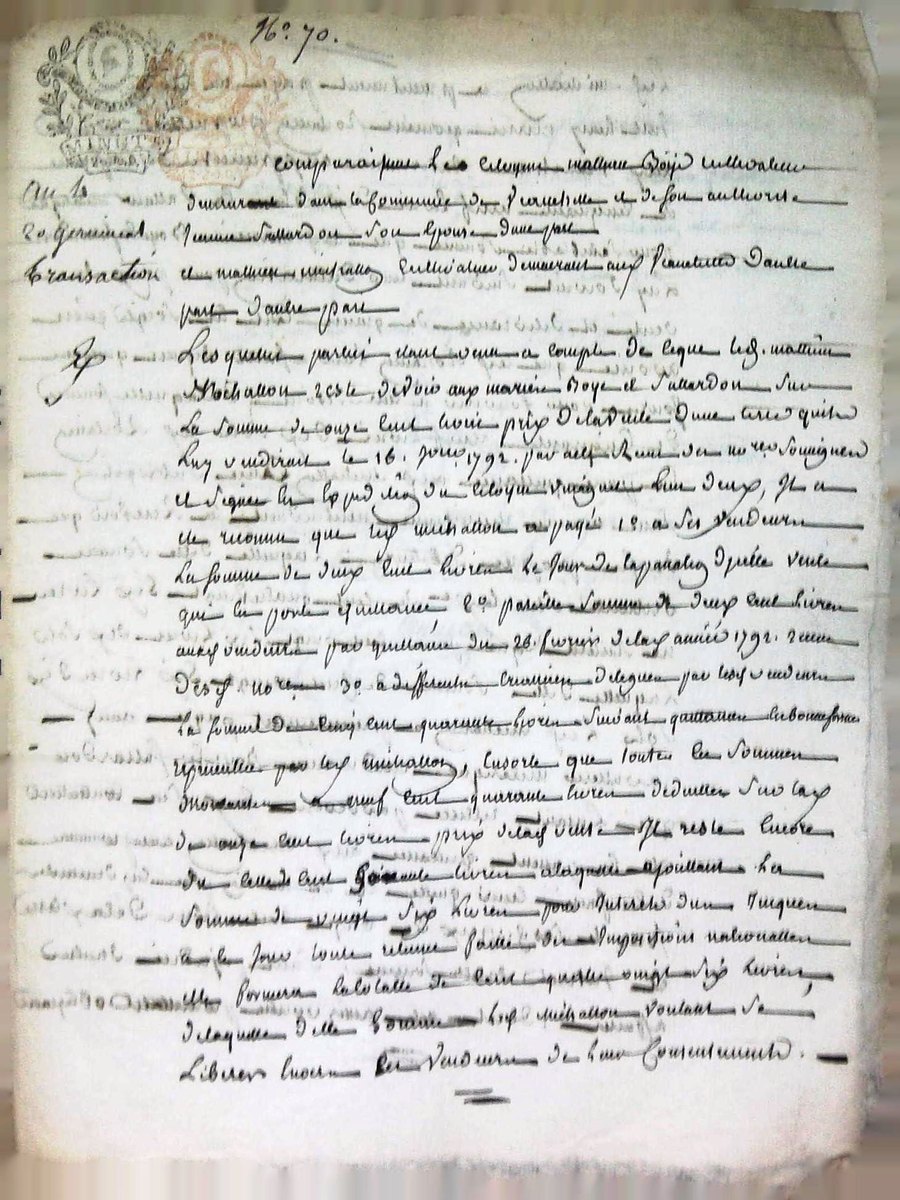 N.° 70.
MINUT
an 6
20 germinal
Transaction
Comparaissent le Citoyen mathieu Boije cultivateur
demeurant dans la Commune de et de son authorité
jeanne Sallardon Son Epouse d'une part
et mathieu michallon cultivateur demeurant aux d'autre
part d'autre part
Lesquelles parties etant venu a compte de ceque led. mathieu
Michallon reste devoir aux mariés Boye et Sallardon Sur
La Somme de onze cent livres prix de la Vente d'une terre qu'ils
Luy vendirent le 16. 1792. par acte Reçu des no.res Soussignes
et Signé En du Citoyen l'un d'eux, Il a
ete reconnu que led michallon a payé 1.° a Ses Vendeurs
La Somme de deux cent livres Le Jour de la passation d'jcelle vente
qui En porte quittance 2.° pareille Somme de deux cent livres
auxd vendeurs par quittance du 26. fevrier de lad année 1792. recue
desd. no.res 3.° a differents Creanciers delegués par lesd vendeurs
La Somme de Cinq cent quarante livres Suivant quittances En bonne forme
par led michallon, Ensorte que toutes ces Sommes
a neuf cent quarante livres deduittes Sur lad
de onze cent livres prix de lad vente Il reste Encore
du celle de cent Soixante livres a laquelle ajoutant La
Somme de vingt Six livres pour Interets d'un jusques
a ce Jour toute retenue faitte des Impositions nationalles
elle formera la totalle de Cent quatre vingt Six livres,
de laquelle d.te Somme led michallon voulant Se
Liberer Envers Les Vendeurs de leur Consentement.